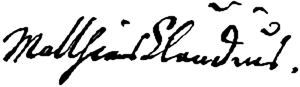 Matthias Claudius.